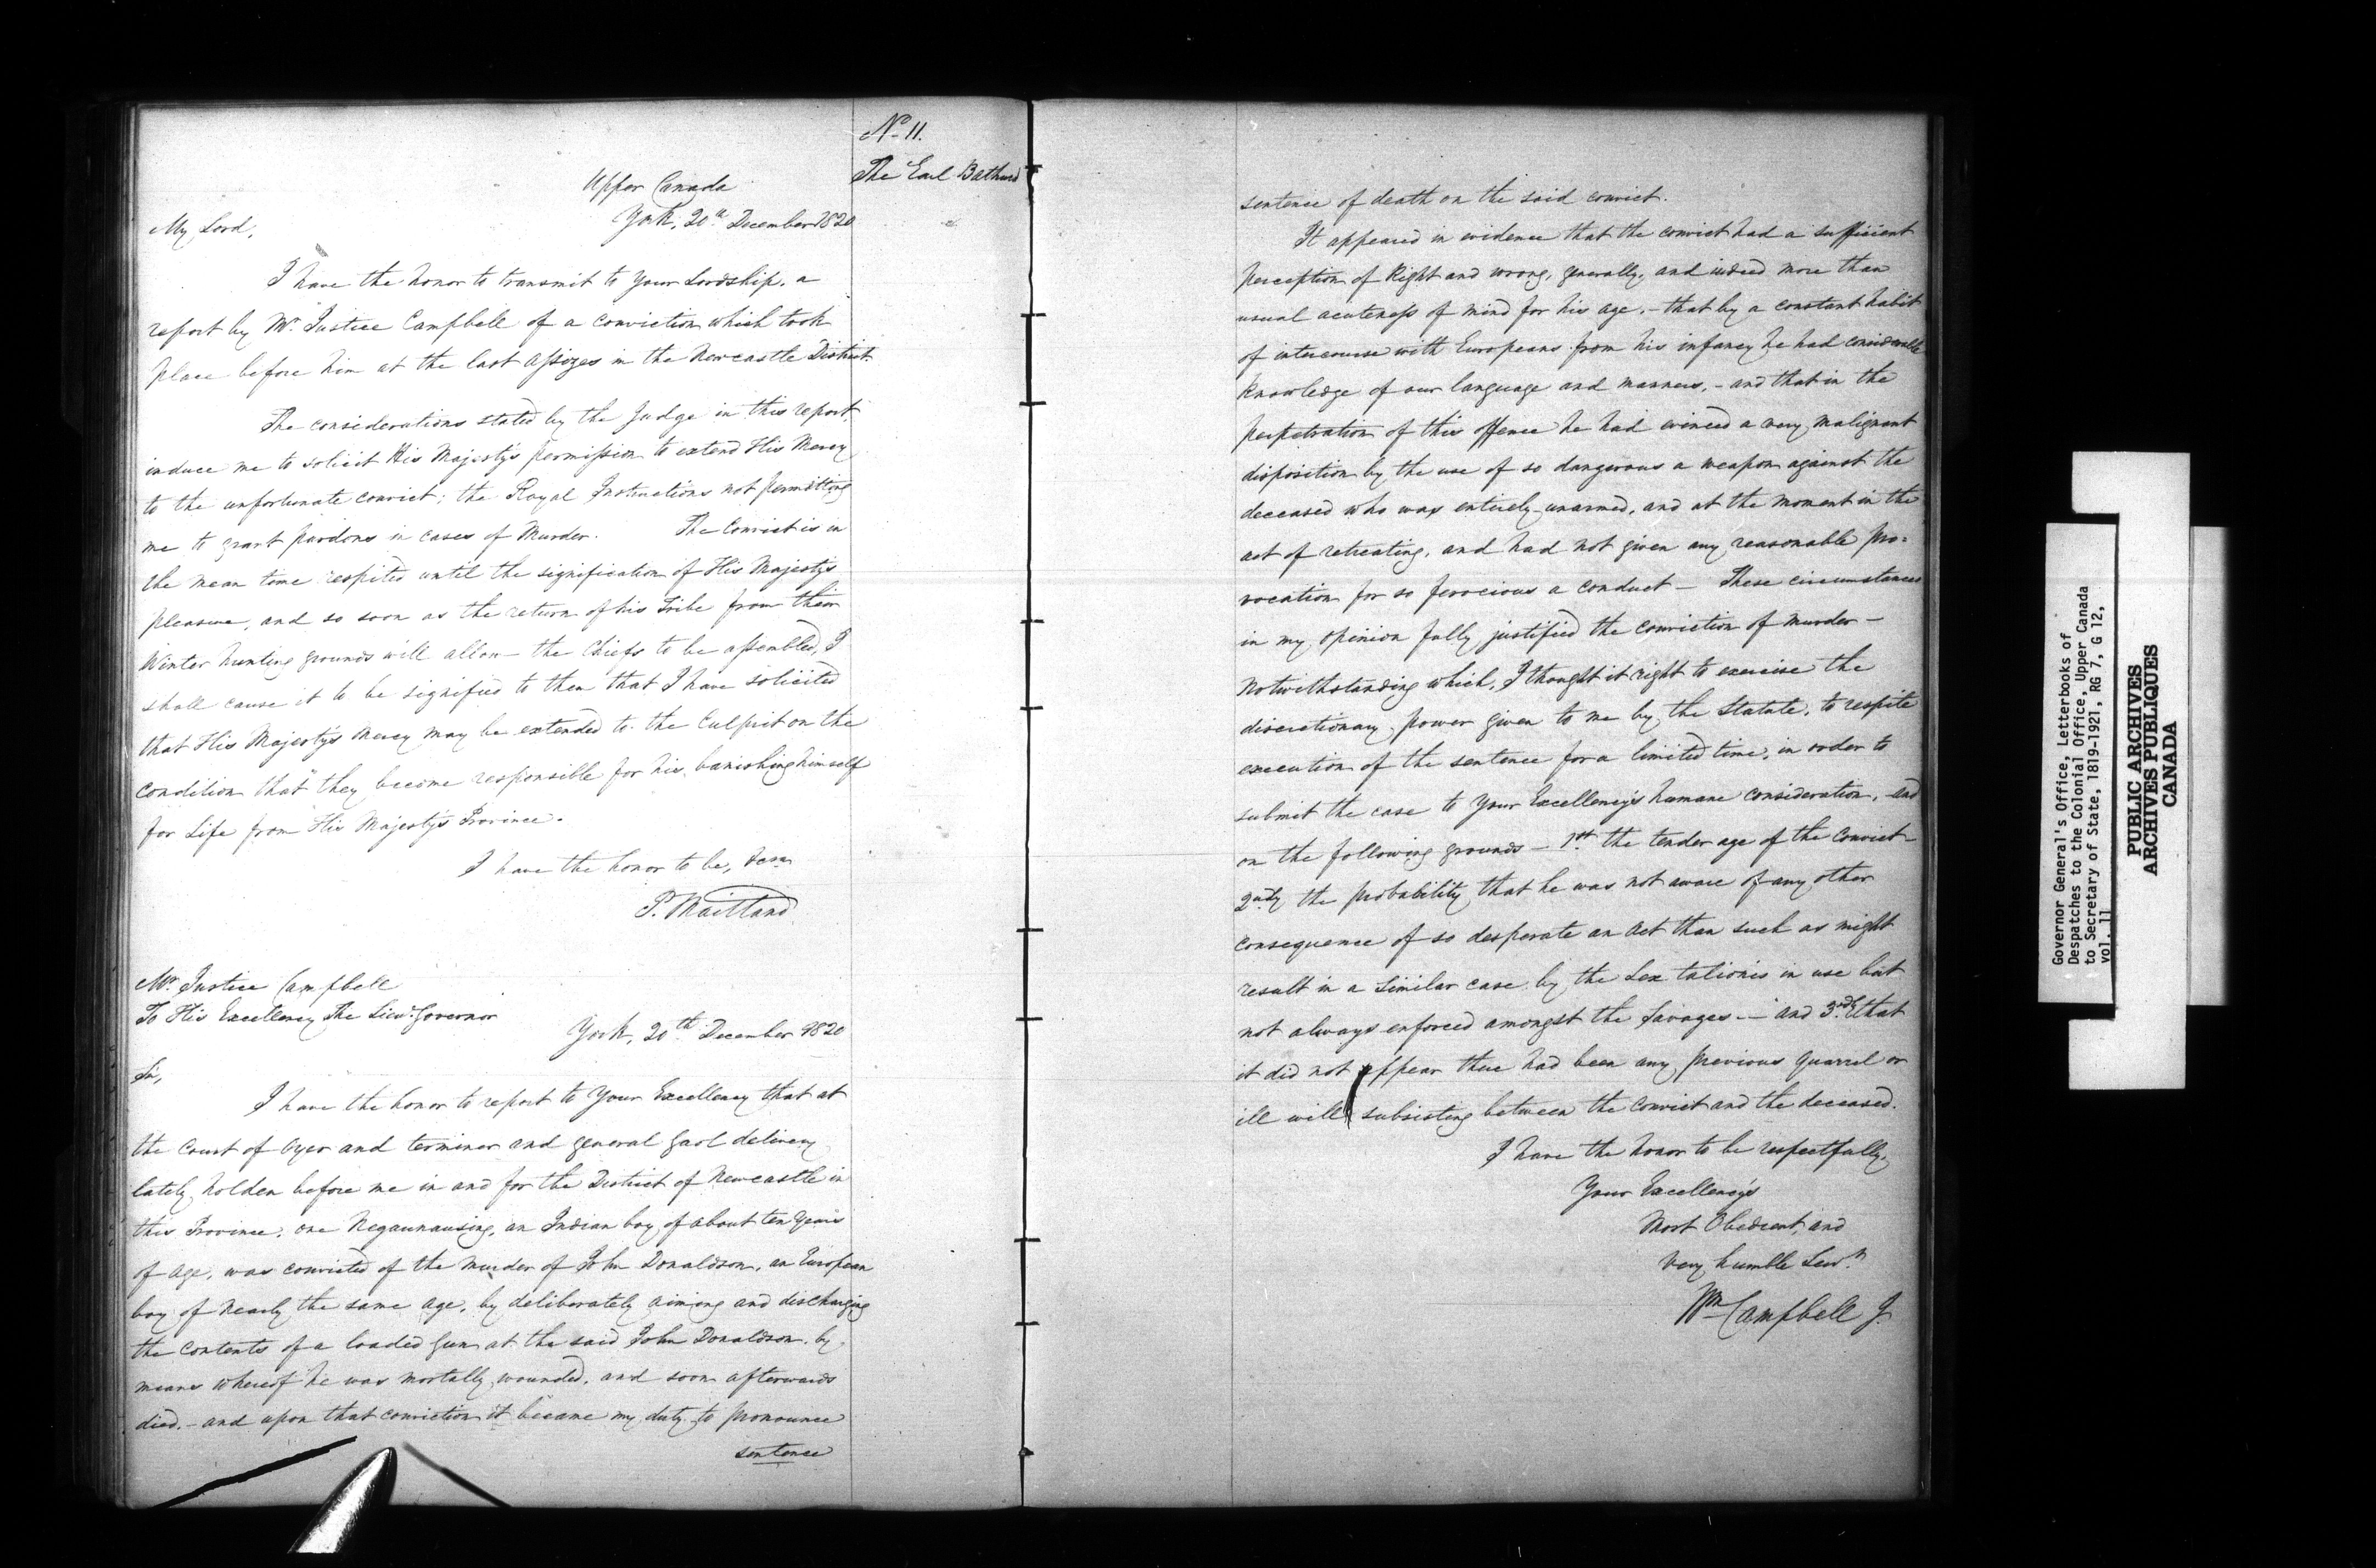 No 11.
The Earl Bathurst
Upper Canada
York, 20th December 1820
My Lord,
I have the honor to transmit to Your Lordship, a
report by Mr Justice Campbell of a conviction which took
place before him at the last Assizes in the Newcastle District
The considerations stated by the Judge in this report,
induce me to solicit His Majesty's permission to extend His Mercy
to the unfortunate convict; the Royal Instructions not permitting
me to grant pardons in cases of Murder. The Convict is in
the mean time respited until the signification of His Majesty's
pleasure, and so soon as the return of his Tribe from their
Winter hunting grounds will allow the Chiefs to be assembled, I
shall cause it to be signified to them that I have solicited
that His Majesty's Mercy may be extended to the Culprit on the
condition that they become responsible for his banishing himself
for Life from His Majesty's Province.
I have the honor to be, &c &c
P. Maitland
Mr Justice Campbell
To His Excellency The Lieut Governor
York, 20th December 1820
Sir,
I have the honor to report to Your Excellency that at
the Court of Oyer and terminer and general Gaol delivery
lately holden before me in and for the District of Newcastle in
this Province, one Negaunausing, an Indian boy of about ten Years
of age, was convicted of the murder of John Donaldson, an European
boy of nearly the same age, by deliberately aiming and discharging
the contents of a loaded gun at the said John Donaldson, by
means whereof he was mortally wounded, and soon afterwards
died. - and upon that conviction it became my duty to pronounce
sentence
sentence of death on the said convict.
It appeared in evidence that the convict had a sufficient
perception of Right and wrong, generally, and indeed more than
usual acuteness of mind for his age, - that by a constant habit
of intercourse with Europeans from his infancy he had considerable
knowledge of our language and manners, - and that in the
perpetration of this offence he had evinced a very malignant
disposition by the use of so dangerous a weapon against the
deceased who was entirely unarmed, and at the moment in the
act of retreating, and had not given any reasonable pro=
vocation for so ferocious a conduct - These circumstances
in my opinion fully justified the conviction of murder -
Notwithstanding which, I thought it right to exercise the
discretionary power given to me by the Statute, to respite
execution of the sentence for a limited time, in order to
submit the case to Your Excellency's humane consideration, and
on the following grounds - 1st the tender age of the Convict
2ndly the probability that he was not aware of any other
consequence of so desperate an Act than such as might
result in a similar case by the Lex talionis in use but
not always enforced amongst the Savages - and 3rdly that
it did not appear there had been any previous quarrel or
ill will subsisting between the Convict and the deceased.
I have the honor to be respectfully,
Your Excellency's
Most Obedient, and
very humble Servt
Wm Campbell J.
Governor General's Office, Letterbooks of
Despatches to the Colonial Office, Upper Canada
to Secretary of State, 1819-1921, RG 7, G 12,
vol. 11
PUBLIC ARCHIVES
ARCHIVES PUBLIQUES
CANADA